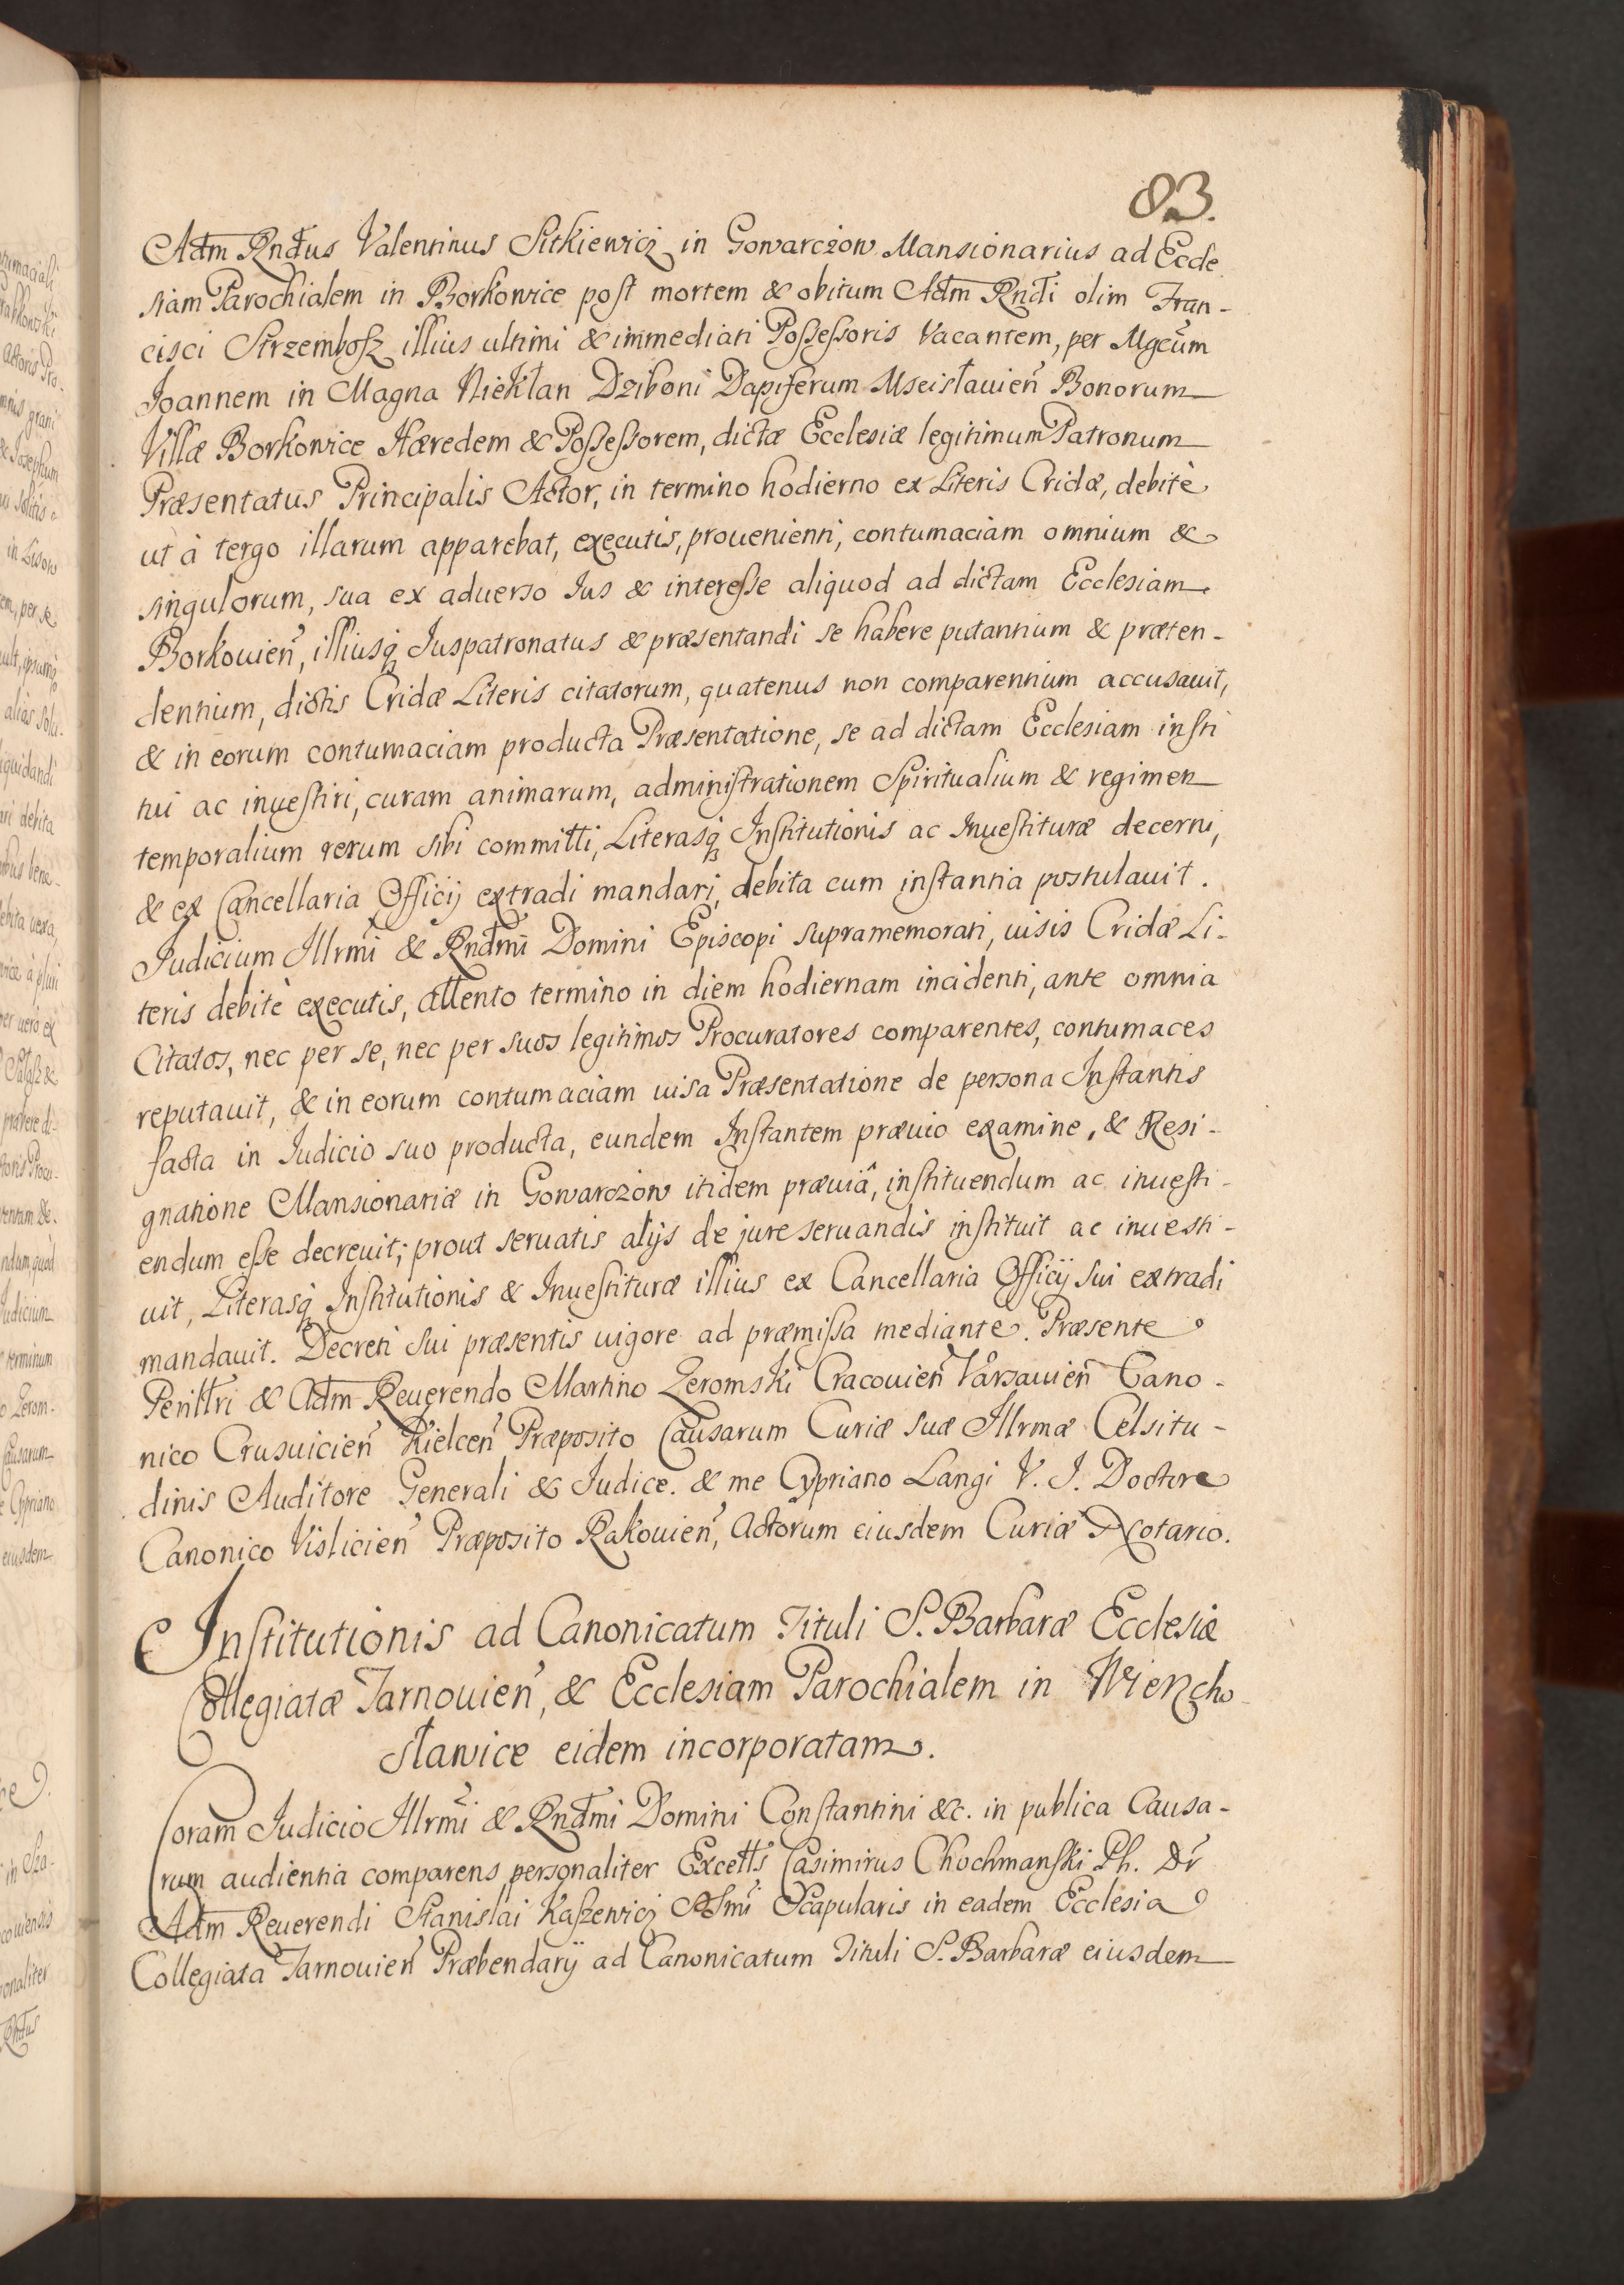 83.
Adm Rndus Valentinus Sitkiewicz in Gowarczow Mansionarius ad Eccle
siam Parochialem in Borkowice post mortem & obitum Adm Rndi olim Fran-
cisci Strzembosz illius ultimi & immediati Possessoris Vacantem, per Mgcum
Joannem in Magna Niekłan Dziboni Dapiferum Mscisłauien Bonorum
Villæ Borkowice Hæredem & Possessorem, dictæ Ecclesiæ legitimum Patronum
Præsentatus Principalis Actor, in termino hodierno ex Literis Cridæ, debitè
ut à tergo illarum apparebat, executis, prouenienti, contumaciam omnium &
singulorum, sua ex aduerso Jus & interesse aliquod ad dictam Ecclesiam
Borkouien, illiusq Juspatronatus & præsentandi se habere putantium & præten-
dentium, dictis Cridæ Literis citatorum, quatenus non comparentium accusauit,
& in eorum contumaciam producta Præsentatione, se ad dictam Ecclesiam insti
tui ac inuestiri, curam animarum, administrationem Spiritualium & regimen
temporalium rerum sibi committi, Literasq Institutionis ac Inuestituræ decerni,
& ex Cancellaria Officij extradi mandari, debita cum instantia postulauit.
Judicium Illrmi & Rndmi Domini Episcopi supramemorati, uisis Cridæ Li-
teris debitè executis, attento termino in diem hodiernam incidenti, ante omnia
Citatos, nec per se, nec per suos legitimos Procuratores comparentes, contumaces
reputauit, & in eorum contumaciam uisa Præsentatione de persona Instantis
facta in Judicio suo producta, eundem Instantem præuio examine, & Resi-
gnatione Mansionariæ in Gowarczow itidem præuiâ, instituendum ac inuesti-
endum esse decreuit; prout seruatis alijs de jure seruandis instituit ac inuesti-
uit, Literasq Institutionis & Inuestituræ illius ex Cancellaria Officij sui extradi
mandauit. Decreti sui præsentis uigore ad præmissa mediante. Præsente
Penittri & Adm Reuerendo Martino Zeromski Cracouien Varsauien Cano-
nico Crusuicien Kielcen Præposito Causarum Curiæ suæ Illrmæ Celsitu-
dinis Auditore Generali & Judice. & me Cypriano Langi V. J. Doctore
Canonico Vislicien Præposito Rakouien, Actorum eiusdem Curiæ Notario.
Institutionis ad Canonicatum Tituli S. Barbaræ Ecclesiæ
Collegiatæ Tarnouien, & Ecclesiam Parochialem in Wiencho-
sławice eidem incorporatam.
Coram Judicio Illrmi & Rndmi Domini Constantini &c. in publica Causa-
rum audientia comparens personaliter Excetts Casimirus Chochmanski Ph. Dr
Adm Reuerendi Stanislai Kaszewicz Scapularis in eadem Ecclesia
Collegiata Tarnouien Præbendarij ad Canonicatum Tituli S. Barbaræ eiusdem